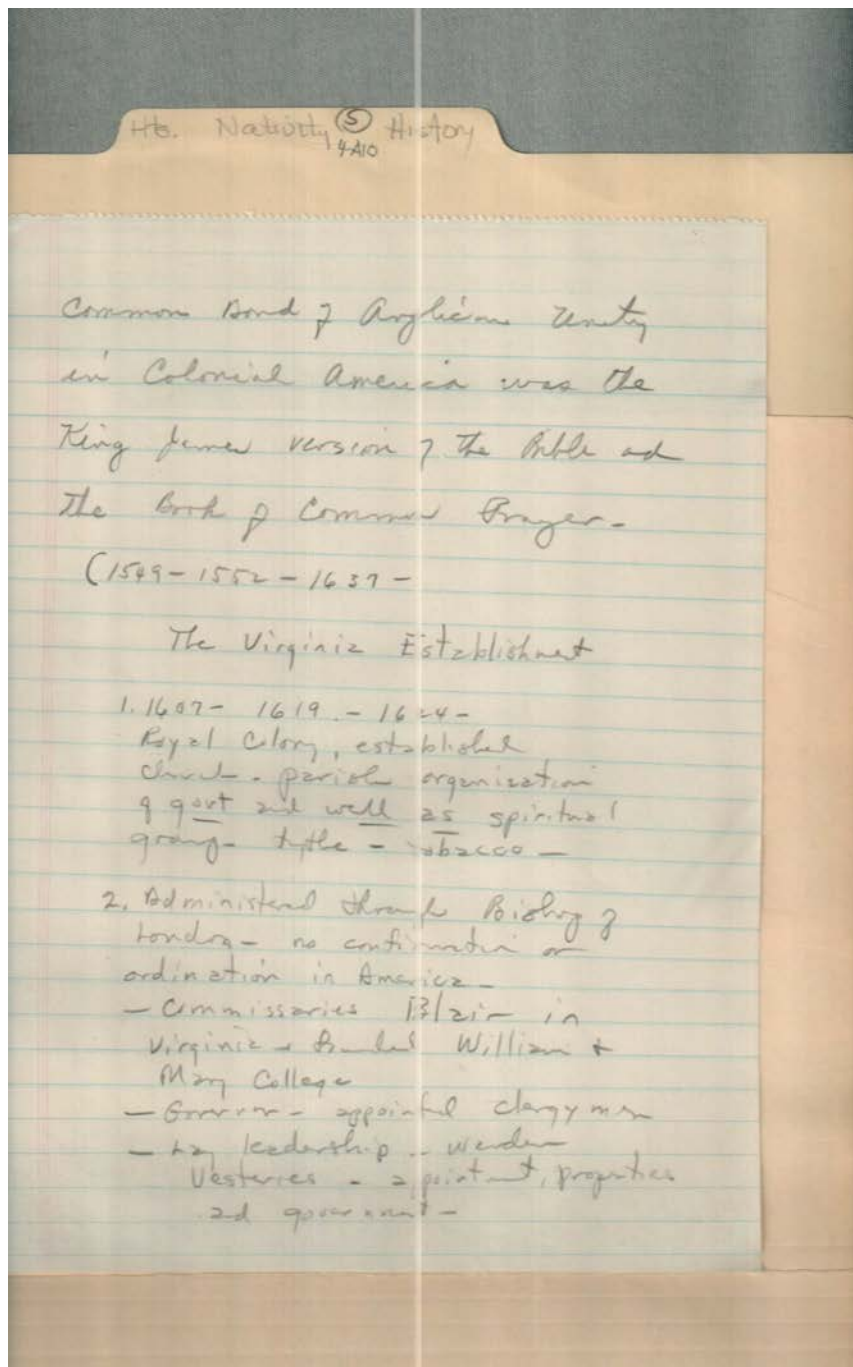 Nativity ⑤ History
4-A10
Common Bond of Anglican Unity
in Colonial America was the
King James version of the Bible and
the Book of Common Prayer-
(1549-1552-1637-
The Virginia Establishment
1. 1607- 1619.- 1624-
Royal Colony, established
church - parish organization
of govt and well as spiritual
group- tythe - tobacco-
2. Administered through Bishop of
London- no confirmation or
ordination in America-
- Commissaries Blair in
Virginia - William +
Mary College
- Governor- appointed clergymen
- Lay leadership - Warden
Vesteries - appointment, properties
and government-